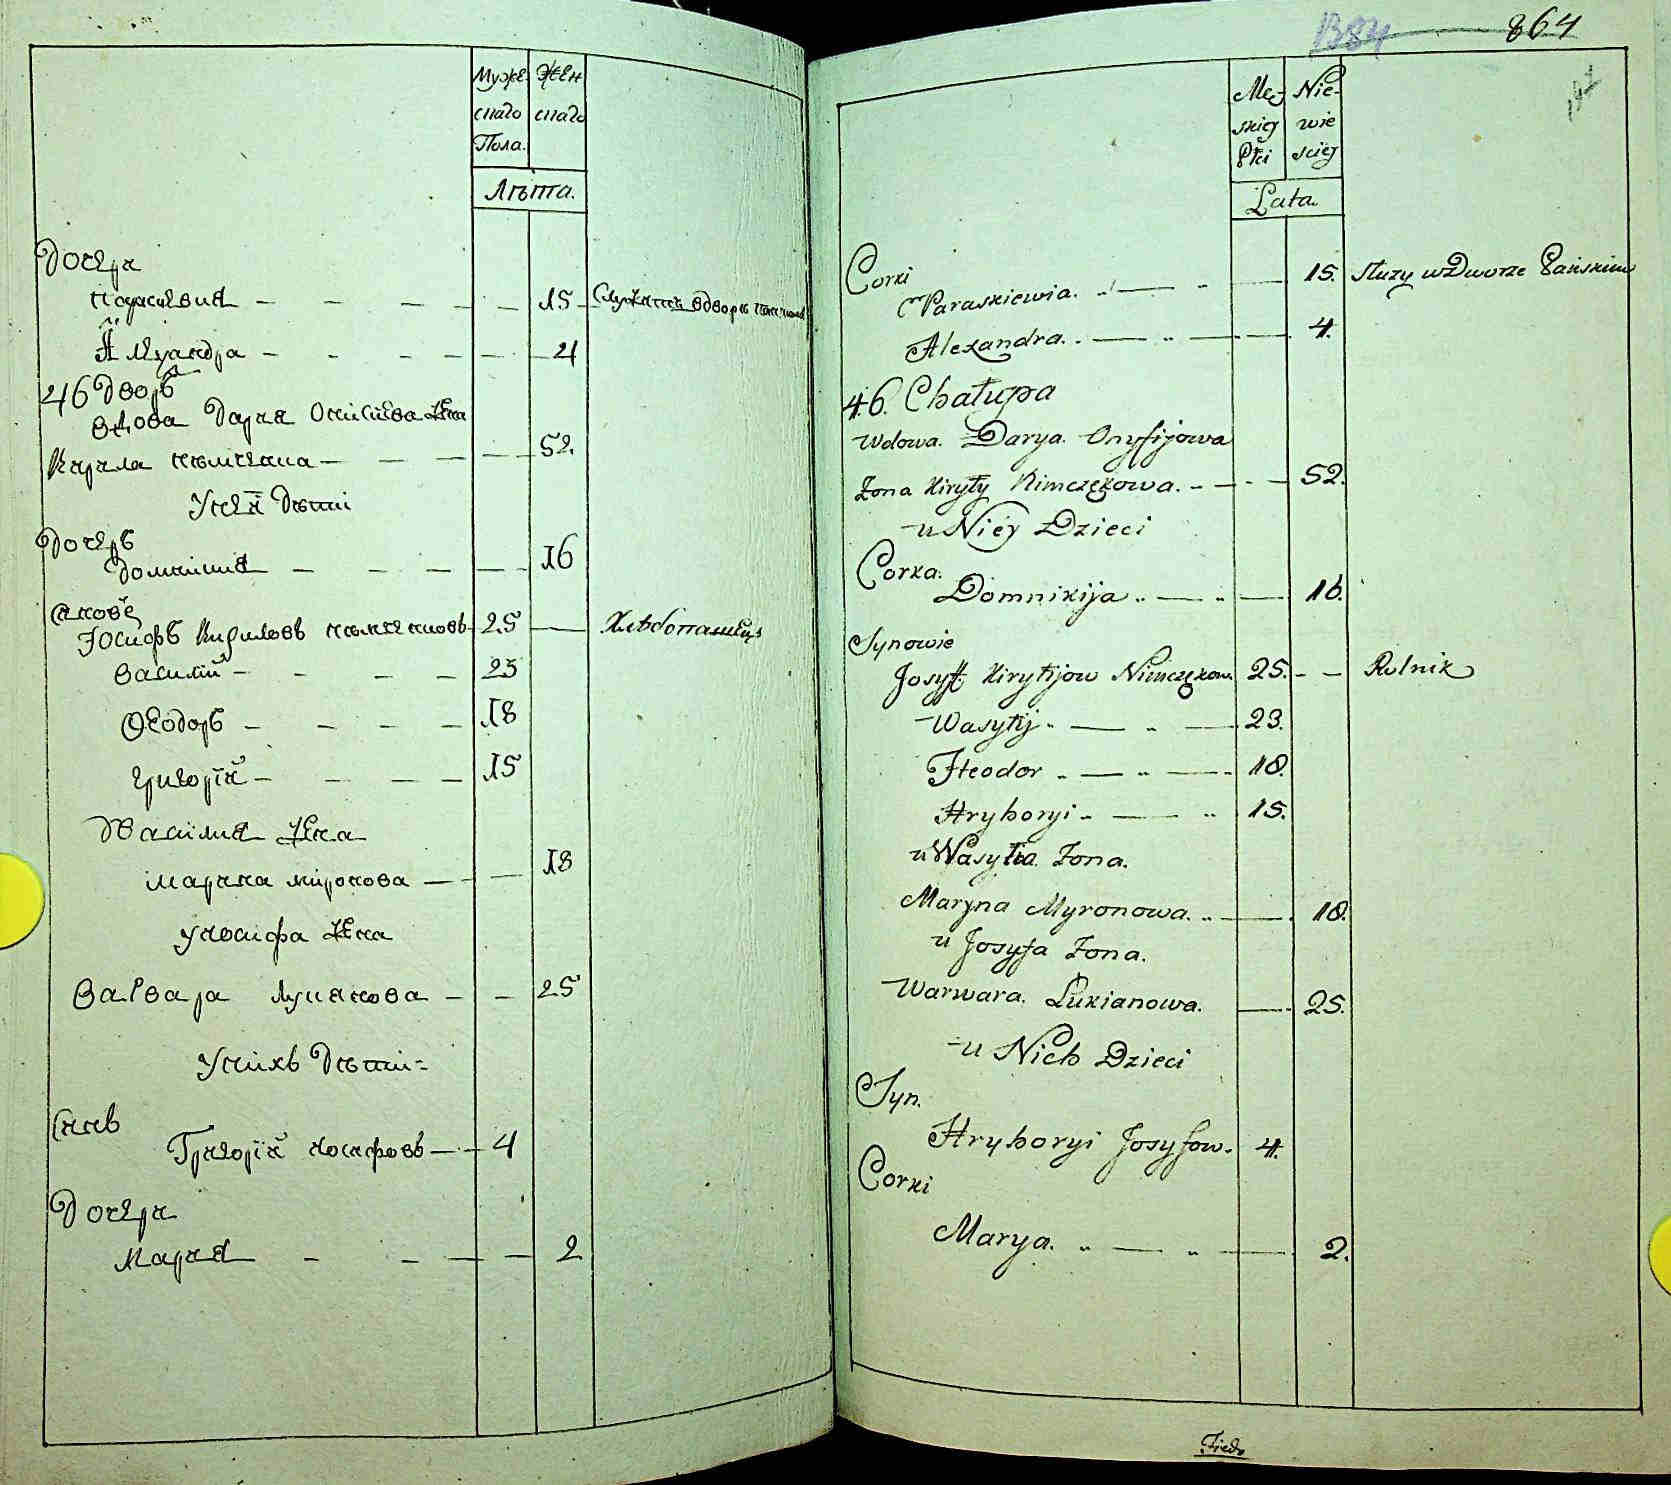 Муже Жен
скаго скаго
Пола.
Лѣта.
Дочери
Параскевия — — — — 15 Служитъ вдворѣ панскомъ
Александра — — — — 4
46 Дворъ
Вдова Дария Онисиева Жена
Кирила Нѣмчекова — — — 52.
У нея Дѣти
Дочерь
Домникия — — — — 16
Сыновя
Юсифъ Кириловъ Нѣмчековъ 25 — Хлѣбопашецъ
Василий — — — — 23
Феодоръ — — — — 18
Григорій — — — — 15
Василия Жена
Марина Миронова — — 18
У Иосифа Жена
Варвара Лукянова — — 25
У нихъ Дѣти
Сынъ
Григорій Иосифовъ — 4
Дочери
Мария — — — — 2
1384 864
Męz Nie-
skiej wie
Płci sciej
Lata.
Corki
Paraskiewia. — 15. Służy w Dworze Pańskim
Alexandra. — „ — 4.
46. Chałupa
Wdowa. Darya. Onyfijowa
Zona Kiryły Nimczękowa. — — 52.
u Niéj Dzieci
Corka.
Domnikija „ — „ — 16.
Synowie
Josyff Kiryłijow Nimczękow. 25. — — Rolnik
Wasylij „ — „ — 23.
Fteodor „ — „ — 18.
Hryhoryi „ — „ 15.
u Wasyla Zona.
Maryna Myronowa. „ — 18.
u Josyfa Zona.
Warwara. Łukianowa. — 25.
u Nich Dzieci
Syn.
Hryhoryi Josyfow. 4.
Corki
Marya. „ — „ — 2.